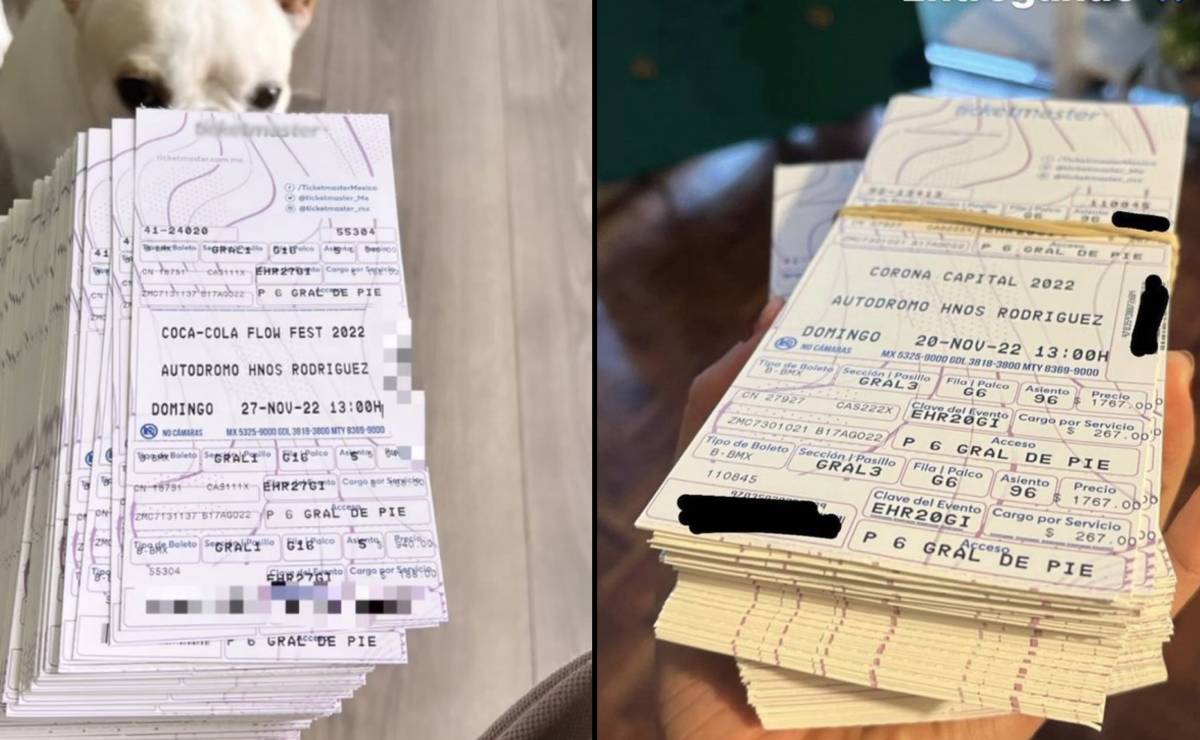 ticketmaster
ticketmaster.com.mx
/TicketmasterMexico
@ticketmaster_Me
@ticketmaster_mx
41-24020 55304
Tipo de Boleto Sección | Pasillo Fila | Palco Asiento Precio
B-BMX GRAL1 G16 5
CN 18791 CAS111X EHR27GI Cargo por Servicio
ZMC7131137 B17AG022 P 6 GRAL DE PIE
COCA-COLA FLOW FEST 2022
AUTODROMO HNOS RODRIGUEZ
DOMINGO 27-NOV-22 13:00H
NO CÁMARAS MX 5325-9000 GDL 3818-3800 MTY 8369-9000
Tipo de Boleto Sección | Pasillo Fila | Palco Asiento
B-BMX GRAL1 G16 5
CN 18791 CAS111X EHR27GI Cargo por Servicio
ZMC7131137 B17AG022 Acceso
P 6 GRAL DE PIE
Tipo de Boleto Sección | Pasillo Fila | Palco Asiento Precio
B-BMX GRAL1 G16 5 $ 940.00
55304 Clave del Evento Cargo por Servicio
EHR27GI $ 188.00
Acceso
P 6 GRAL DE PIE
Entregando
ticketmaster
110845
G6 96
P 6 GRAL DE PIE
CORONA CAPITAL 2022
AUTODROMO HNOS RODRIGUEZ
DOMINGO 20-NOV-22 13:00H
NO CÁMARAS MX 5325-9000 GDL 3818-3800 MTY 8369-9000
Tipo de Boleto Sección | Pasillo Fila | Palco Asiento Precio
B-BMX GRAL3 G6 96 $ 1767.00
CN 27927 CAS222X Clave del Evento Cargo por Servicio
EHR20GI $ 267.00
ZMC7301021 B17AG022 Acceso
P 6 GRAL DE PIE
Tipo de Boleto Sección | Pasillo Fila | Palco Asiento Precio
B-BMX GRAL3 G6 96 $ 1767.00
110845 Clave del Evento Cargo por Servicio
EHR20GI $ 267.00
Acceso
P 6 GRAL DE PIE